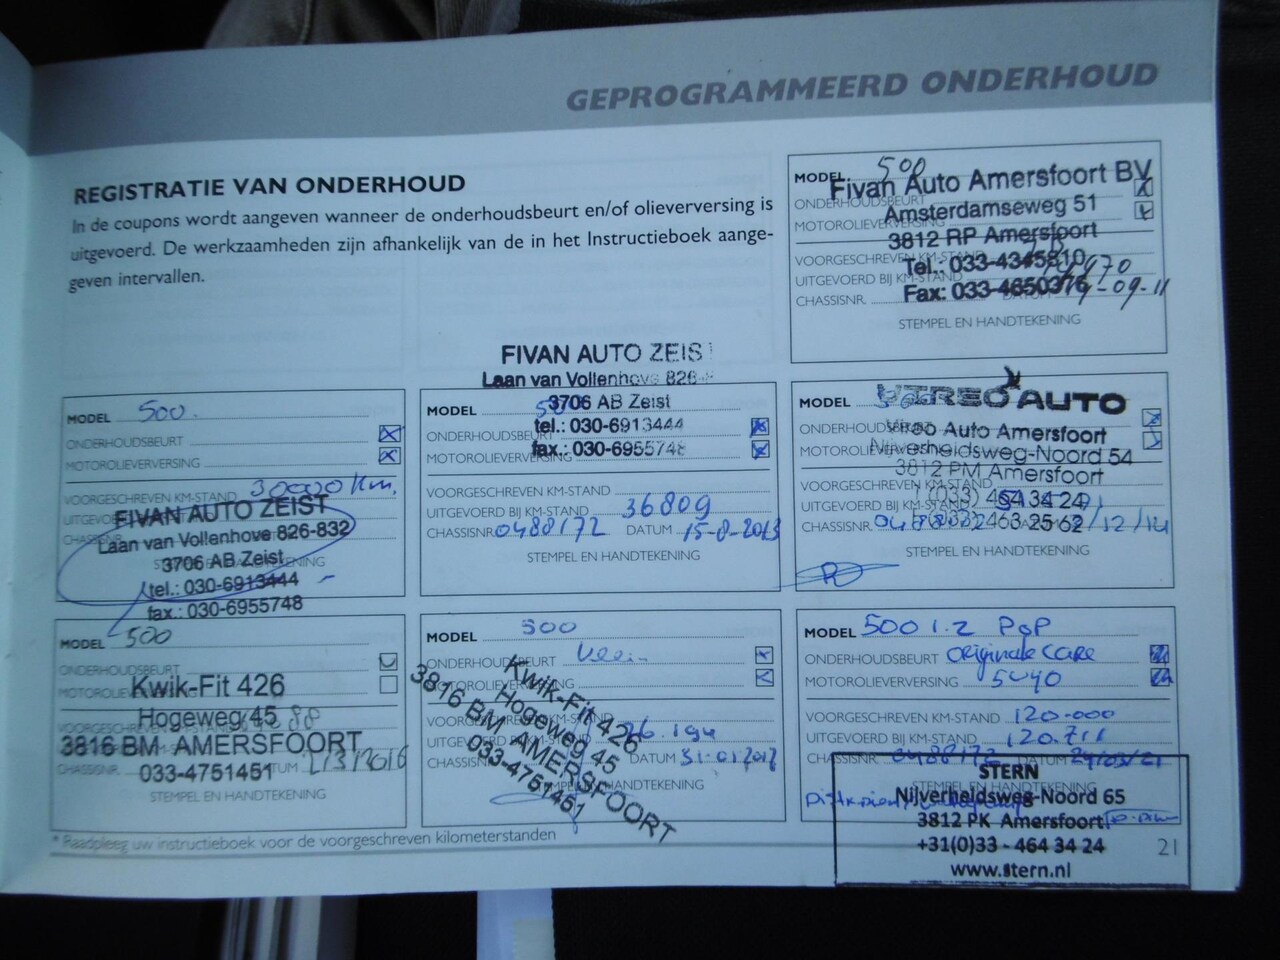 GEPROGRAMMEERD ONDERHOUD
REGISTRATIE VAN ONDERHOUD
In de coupons wordt aangeven wanneer de onderhoudsbeurt en/of olieverversing is
uitgevoerd. De werkzaamheden zijn afhankelijk van de in het Instructieboek aange-
geven intervallen.
MODEL 500
Fivan Auto Amersfoort BV
ONDERHOUDSBEURT
Amsterdamseweg 51
MOTOROLIEVERVERSING
3812 RP Amersfoort
VOORGESCHREVEN KM-STAND
Tel.: 033-4345810
UITGEVOERD BIJ KM-STAND
Fax: 033-4650376
CHASSISNR. DATUM -09-11
STEMPEL EN HANDTEKENING
MODEL 500.
ONDERHOUDSBEURT
MOTOROLIEVERVERSING
VOORGESCHREVEN KM-STAND 30000 Km.
FIVAN AUTO ZEIST
Laan van Vollenhove 826-832
3706 AB Zeist
tel.: 030-6913444
fax.: 030-6955748
FIVAN AUTO ZEIST
Laan van Vollenhove 826-
3706 AB Zeist
MODEL 500
tel.: 030-6913444
ONDERHOUDSBEURT
fax.: 030-6955748
MOTOROLIEVERVERSING
VOORGESCHREVEN KM-STAND
UITGEVOERD BIJ KM-STAND 36809
CHASSISNR. 0488172 DATUM 15-8-2013
STEMPEL EN HANDTEKENING
MODEL
VTREO AUTO
ONDERHOUDSBEURT
Vireo Auto Amersfoort
MOTOROLIEVERVERSING
Nijverheidsweg-Noord 54
3812 PM Amersfoort
VOORGESCHREVEN KM-STAND
(033) 464 34 24
UITGEVOERD BIJ KM-STAND
CHASSISNR. 463 25 62 /12/14
STEMPEL EN HANDTEKENING
MODEL 500
ONDERHOUDSBEURT
Kwik-Fit 426
Hogeweg 45
3816 BM AMERSFOORT
CHASSISNR. 033-4751451
STEMPEL EN HANDTEKENING
MODEL 500
ONDERHOUDSBEURT klein
MOTOROLIEVERVERSING
Kwik-Fit 426
Hogeweg 45
3816 BM AMERSFOORT
033-4751451
UITGEVOERD BIJ KM-STAND
CHASSISNR. DATUM 31-01-2017
MODEL 500 1.2 POP
ONDERHOUDSBEURT originale care
MOTOROLIEVERVERSING 5W40
VOORGESCHREVEN KM-STAND 120.000
UITGEVOERD BIJ KM-STAND 120.711
CHASSISNR. 0488172 DATUM
STEMPEL EN HANDTEKENING
STERN
Nijverheidsweg-Noord 65
3812 PK Amersfoort
+31(0)33 - 464 34 24
www.stern.nl
* Raadpleeg uw instructieboek voor de voorgeschreven kilometerstanden
21